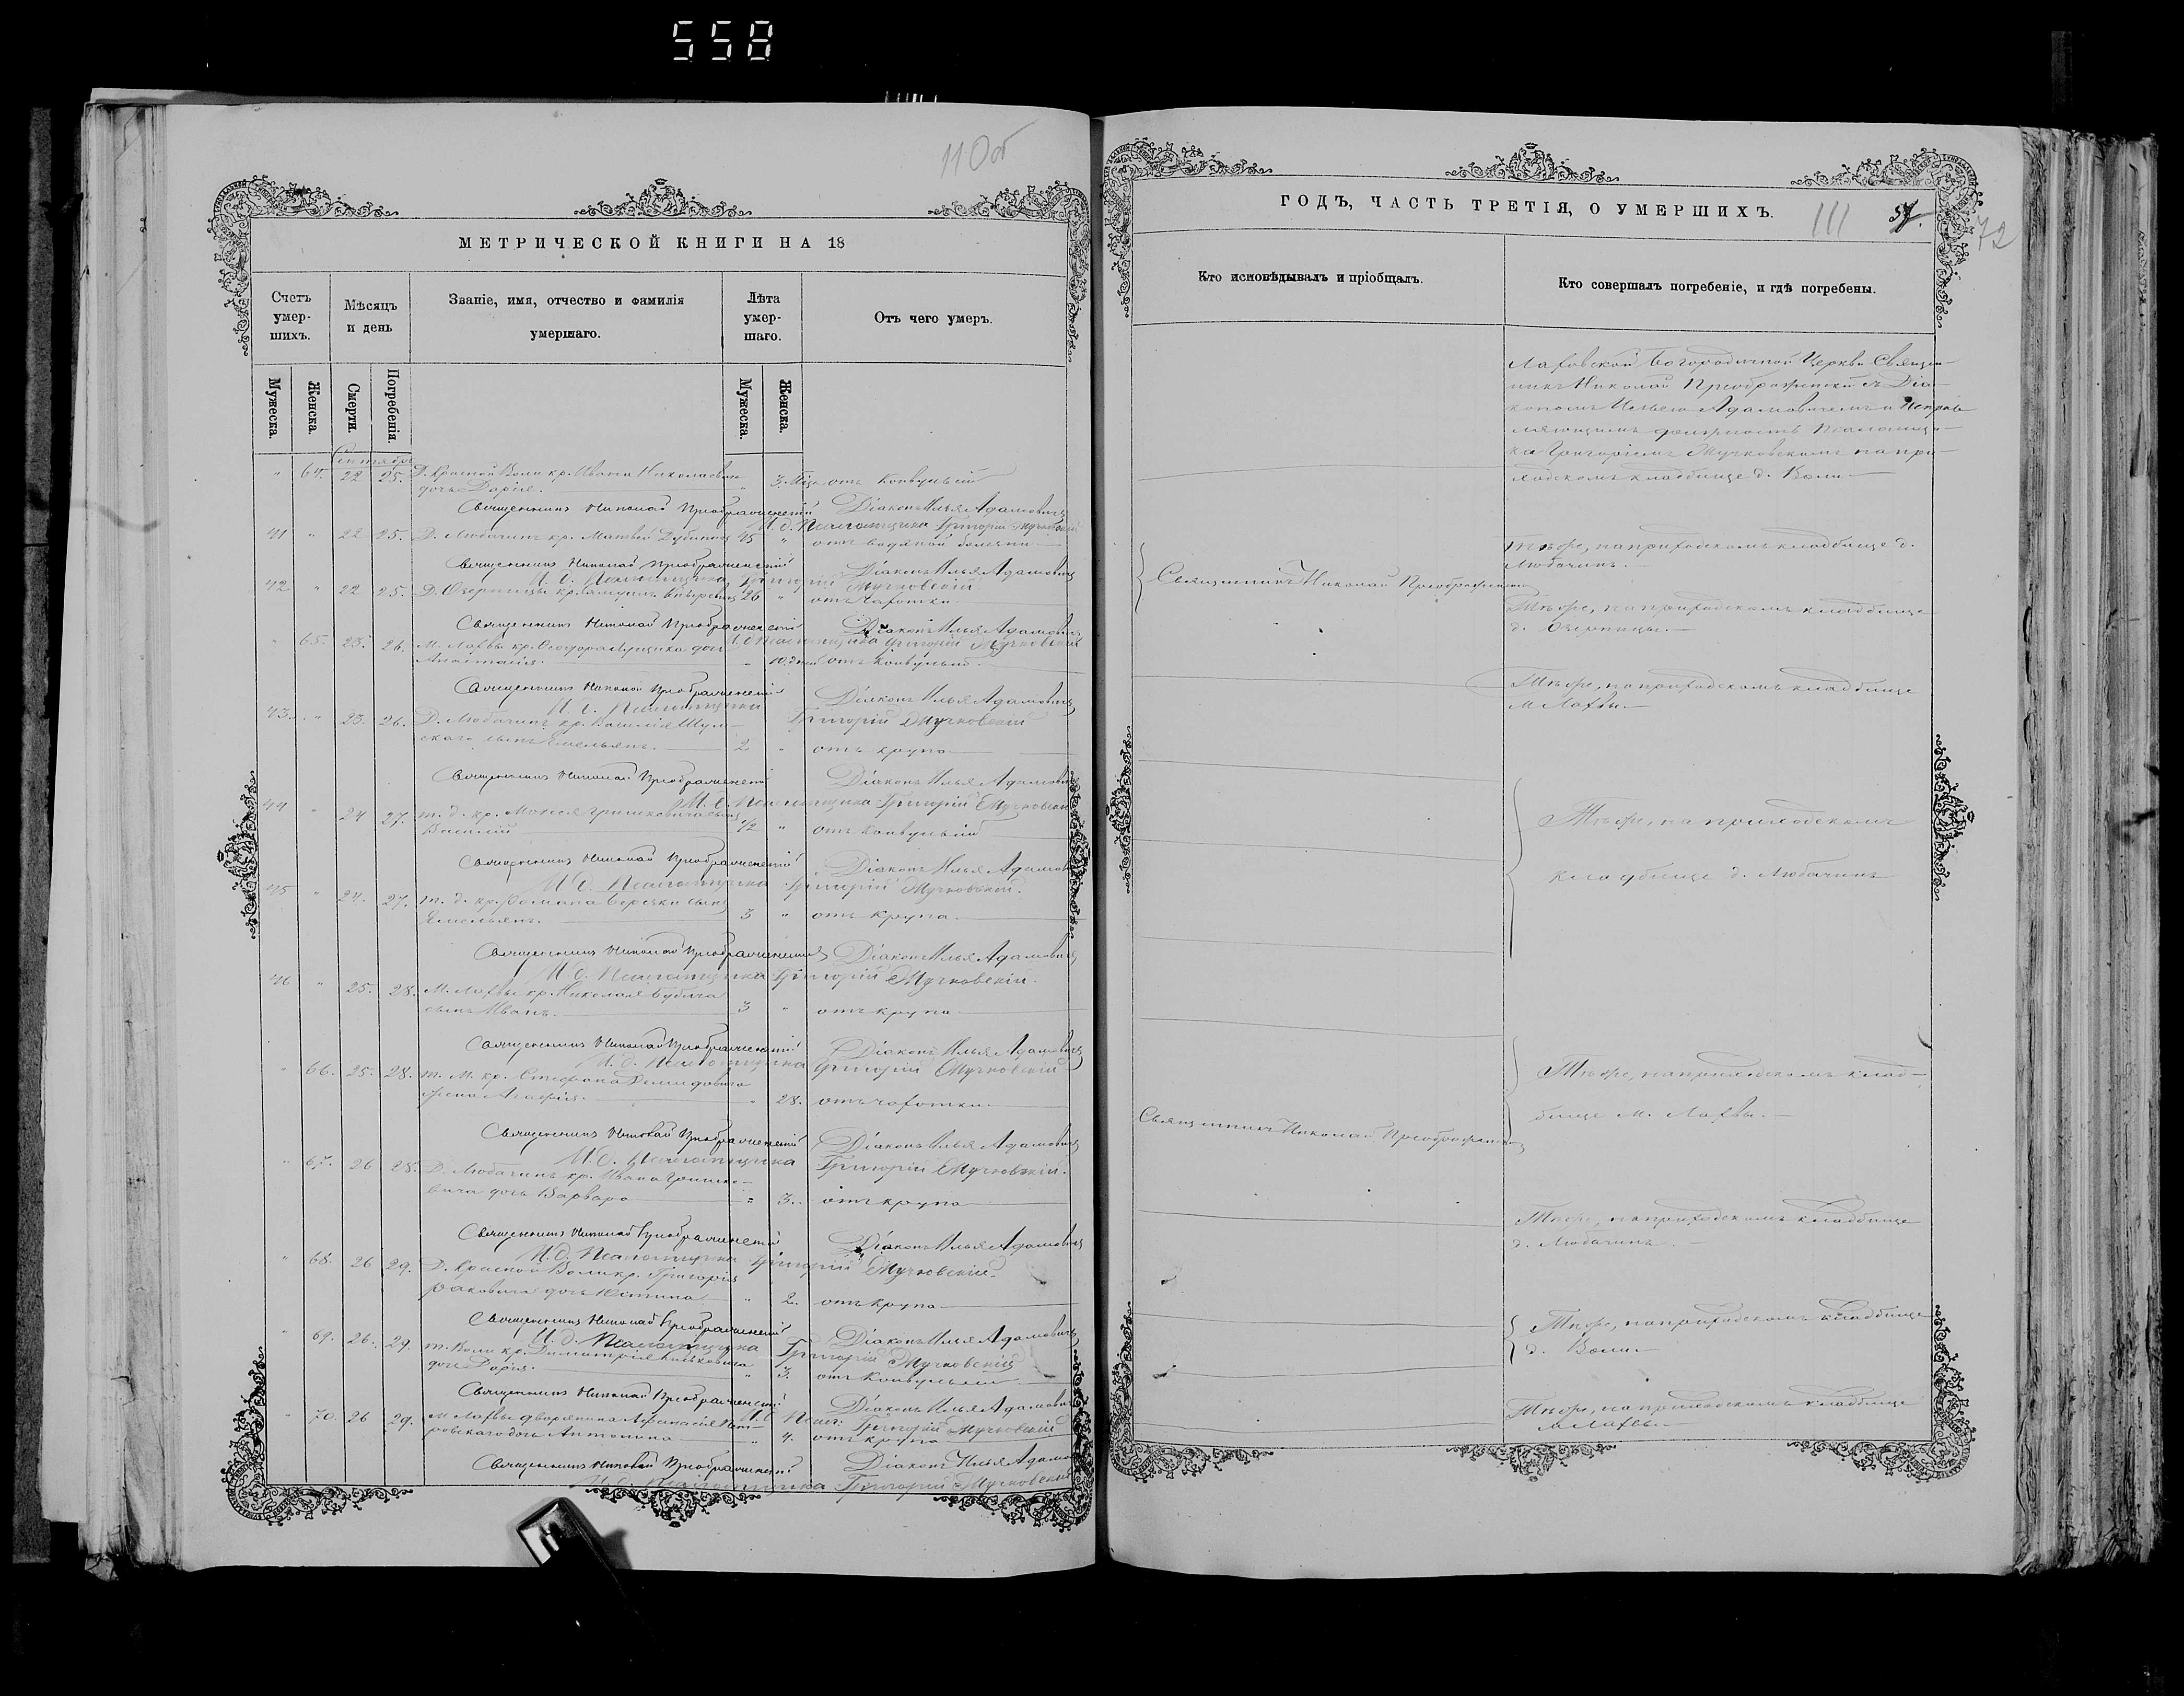 558
110об
МЕТРИЧЕСКОЙ КНИГИ НА 18
Счетъ умер-шихъ.
Мѣсяцъ и день
Званіе, имя, отчество и фамилія умершаго.
Лѣта умер-шаго.
Отъ чего умеръ.
Мужеска.
Женска.
Смерти.
Погребенія.
Мужеска.
Женска.
Сентября
" 64. 22 25. Д. Красной Воли кр. Ивана
дочь Дарія. " 3. отъ Конвульсій
Священникъ Николай Преображенскій Діаконъ Илья Адамовичъ
И. д. Псаломщика Григорій Мучковскій
41 " 22 25. Д. Любачинъ кр. Матвѣй 45 " отъ водяной болезни
Священникъ Николай Преображенскій Діаконъ Илья Адамовичъ
И. д. Псаломщика Григорій Мучковскій
42 " 22 25. Д. Озерницы кр. 26 " отъ Чахотки
Священникъ Николай Преображенскій Діаконъ Илья Адамовичъ
И. д. Псаломщика Григорій Мучковскій
" 65. 23. 26. М. Лахвы кр. Ѳеодора дочь
Анастасія. " 10. дней отъ конвульсій.
Священникъ Николай Преображенскій Діаконъ Илья Адамовичъ
И. д. Псаломщика Григорій Мучковскій
43. " 23. 26. Д. Любачинъ кр. Василія Шум-
скаго сынъ Емельянъ. 2 " отъ крупа
Священникъ Николай Преображенскій Діаконъ Илья Адамовичъ
И. д. Псаломщика Григорій Мучковскій
44 " 24 27. т. д. кр. Моисея Гришкевича сынъ
Василій 1/2 " отъ Конвульсій
Священникъ Николай Преображенскій Діаконъ Илья Адамовичъ
И. д. Псаломщика Григорій Мучковскій.
45 " 24. 27. т. д. кр. Романа сынъ
Емельянъ. 3 " отъ крупа
Священникъ Николай Преображенскій Діаконъ Илья Адамовичъ
И. д. Псаломщика Григорій Мучковскій.
46 " 25. 28. М. Лахвы кр. Николая
сынъ Иванъ. 3 " отъ крупа
Священникъ Николай Преображенскій Діаконъ Илья Адамовичъ
И. д. Псаломщика Григорій Мучковскій
" 66. 25. 28. т. М. кр. Стефана Демидовича
жена Агафія. " 28. отъ чахотки
Священникъ Николай Преображенскій Діаконъ Илья Адамовичъ
И. д. Псаломщика Григорій Мучковскій.
" 67. 26 28. Д. Любачинъ кр. Ивана Гришке-
вича дочь Варвара " 3. отъ крупа
Священникъ Николай Преображенскій Діаконъ Илья Адамовичъ
И. д. Псаломщика Григорій Мучковскій.
" 68. 26 29. Д. Красной Воли кр. Григорія
дочь Юстина " 2. отъ крупа
Священникъ Николай Преображенскій Діаконъ Илья Адамовичъ
И. д. Псаломщика Григорій Мучковскій
" 69. 26. 29. т. Воли кр. Димитрія
дочь Дарія. " 3. отъ Конвульсій
Священникъ Николай Преображенскій Діаконъ Илья Адамовичъ
И. д. Псал: Григорій Мучковскій
" 70. 26 29. М. Лахвы дворянина Афанасія
дочь Антонина " 4. отъ крупа
Священникъ Николай Преображенскій Діаконъ Илья Адамовичъ
И. д. Псаломщика Григорій Мучковскій
ГОДЪ, ЧАСТЬ ТРЕТІЯ, О УМЕРШИХЪ.
111 57. 72
Кто исповѣдывалъ и пріобщалъ.
Кто совершалъ погребеніе, и гдѣ погребены.
Лаховской Богородичной Церкви Священ-
никъ Николай Преображенскій съ Діа-
кономъ Ильею Адамовичемъ и Исправ
ляющимъ должность Псаломщи-
ка Григоріемъ Мучковскимъ на при-
ходскомъ кладбище д. Воли
Священникъ Николай Преображенскій
Тѣже, на приходскомъ кладбище д.
Любачинъ.
Тѣже, на приходскомъ кладбище
д. Озерницы.
Тѣже, на приходскомъ кладбище
М. Лахвы.
Тѣже, на приходскомъ
кладбище д. Любачинъ
Тѣже, на приходскомъ клад-
бище М. Лахвы.
Священникъ Николай Преображенскій
Тѣже, на приходскомъ кладбище
д. Любачинъ.
Тѣже, на приходскомъ кладбище
д. Воли.
Тѣже, на приходскомъ кладбище
М. Лахвы